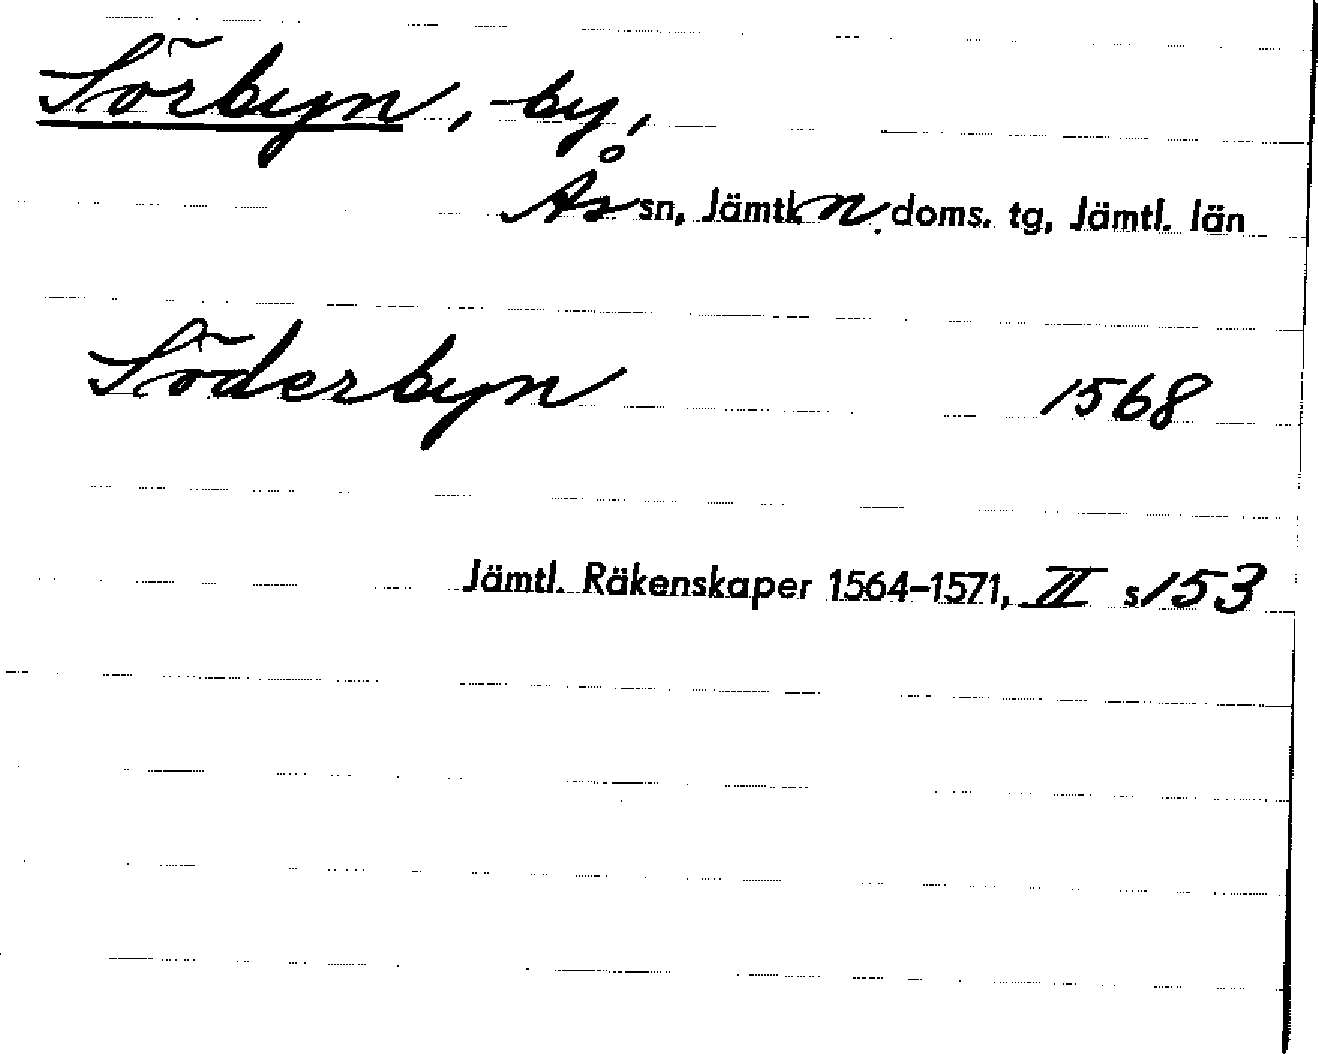 Sörbyn, by,
Ås sn, Jämtl. n. doms. tg, Jämtl. län
Söderbyn 1568
Jämtl. Räkenskaper 1564–1571, II s 153